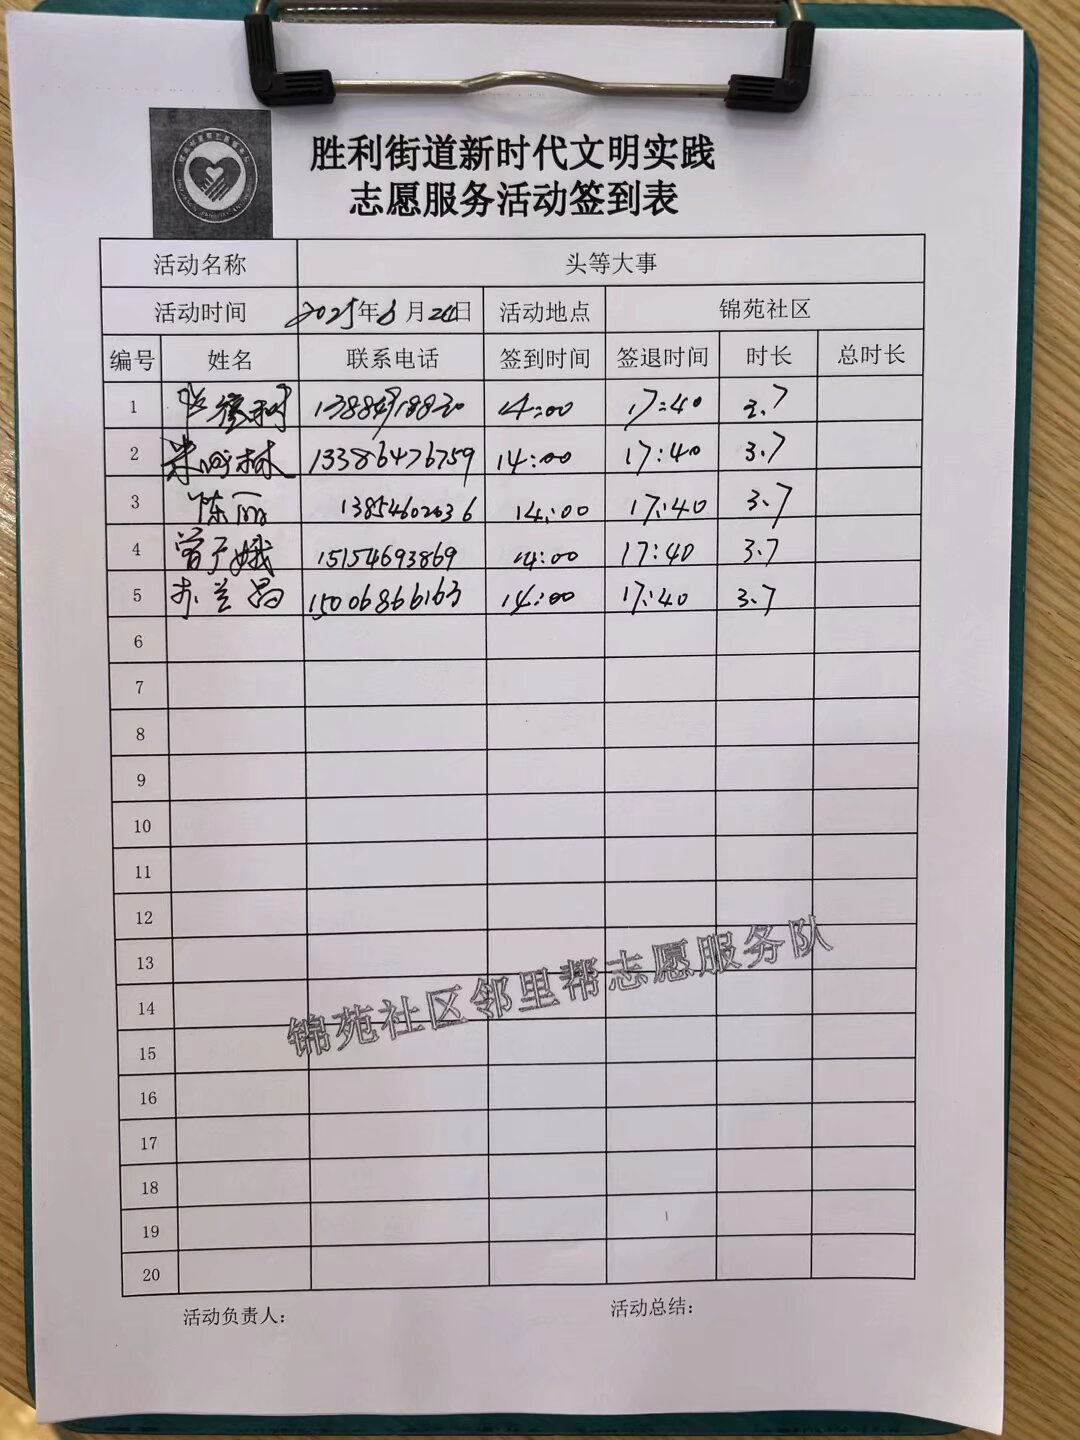 胜利街道新时代文明实践
志愿服务活动签到表
活动名称 头等大事
活动时间 2025年6月24日 活动地点 锦苑社区
编号 姓名 联系电话 签到时间 签退时间 时长 总时长
1 14:00 17:40 3.7
2 13386476759 14:00 17:40 3.7
3 陈丽 13854602036 14:00 17:40 3.7
4 15154693869 14:00 17:40 3.7
5 15006866163 14:00 17:40 3.7
6
7
8
9
10
11
12
13
14
15
16
17
18
19
20
锦苑社区邻里帮志愿服务队
活动负责人: 活动总结: